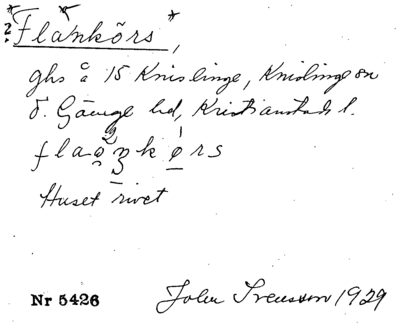 * * *
? Flankörs,
ghs å 15 Knislinge, Knislinge sn
Ö. Göinge hd, Kristianstads l.
flaŋkørs
Huset rivet
Nr 5426 John Svensson 1929